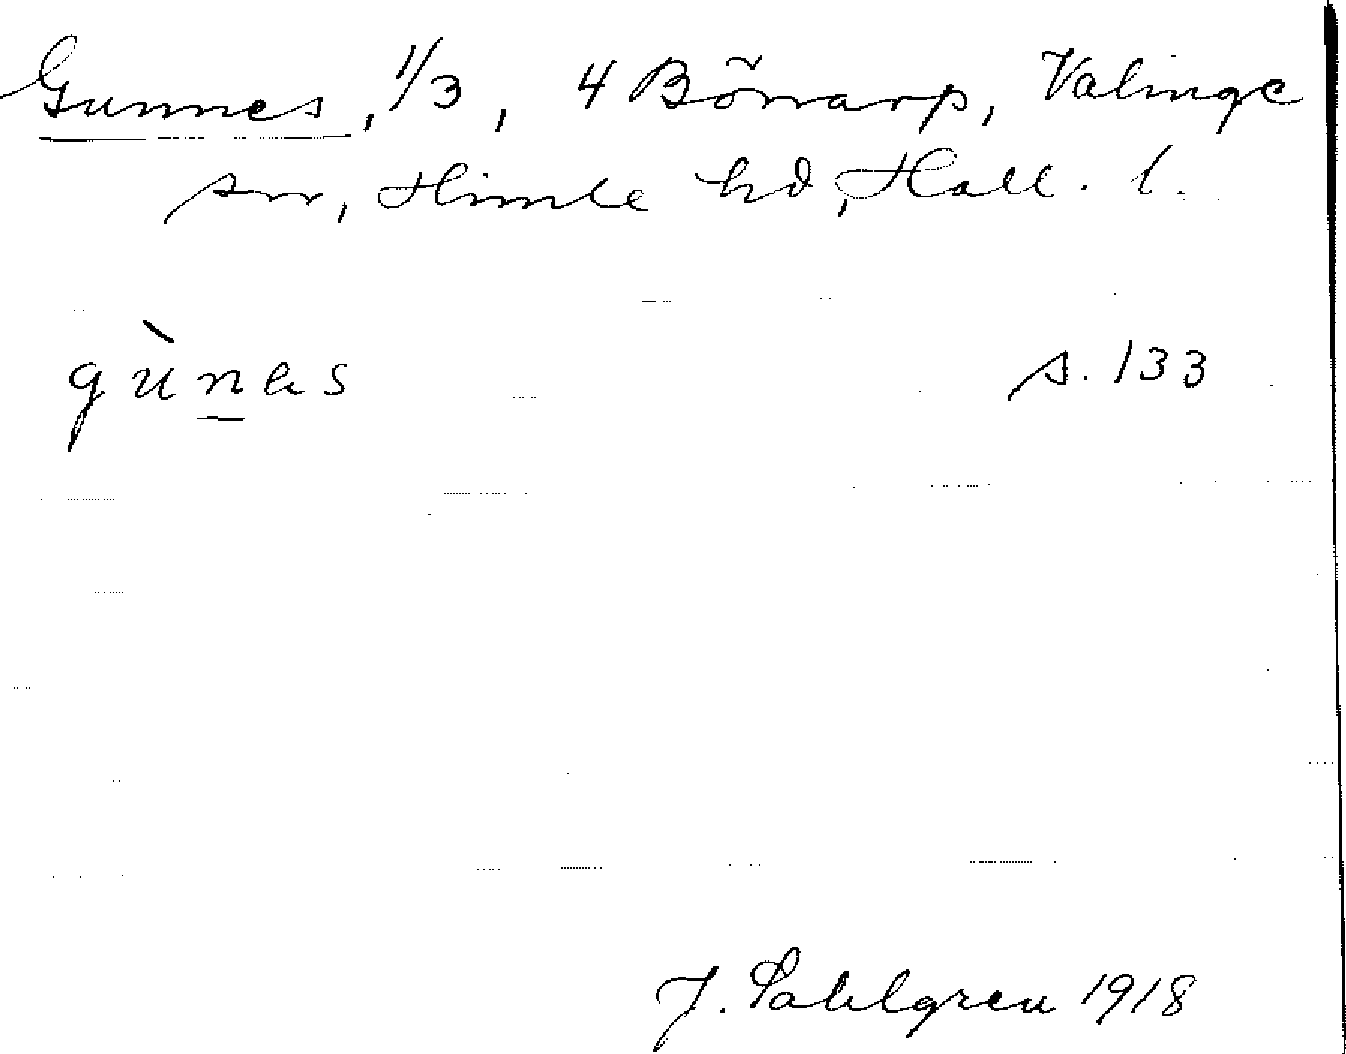 Gunnes, 1/3, 4 Börrarp, Valinge
sn, Himle hd, Hall. l.
gùnas s. 133
J. Sahlgren 1918